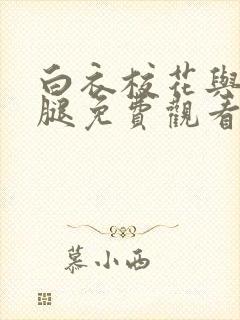 白衣校花與
腿免費觀看
慕小西